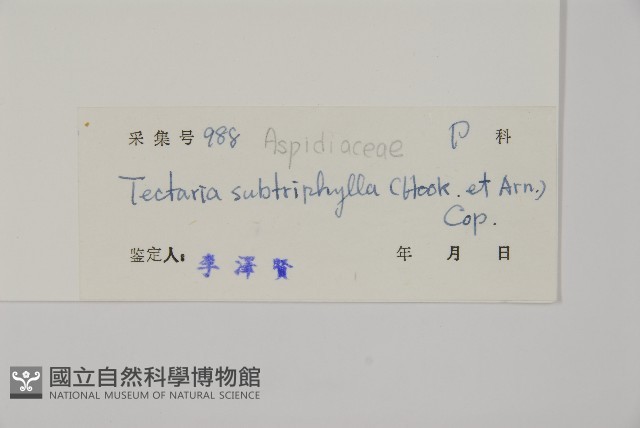 采集号 988 Aspidiaceae P 科
Tectaria subtriphylla (Hook. et Arn.)
Cop.
鉴定人: 李澤賢 年 月 日
國立自然科學博物館
NATIONAL MUSEUM OF NATURAL SCIENCE